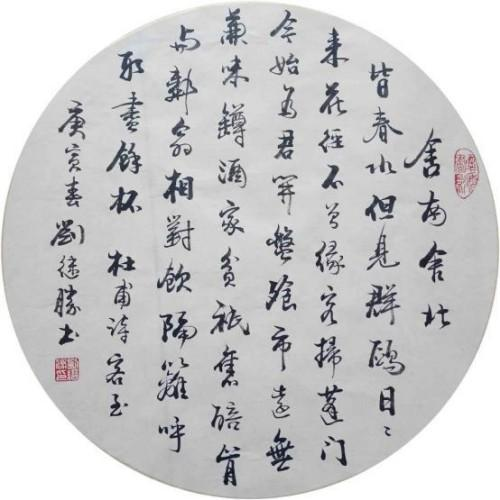 舍南舍北
皆春水但見群鷗日〻
来花徑不曾緣客掃蓬门
今始为君開盤飧市遠無
兼味罇酒家貧祇舊醅肯
与鄰翁相對飲隔籬呼
取盡餘杯 杜甫詩客至
庚寅春 劉继勝书